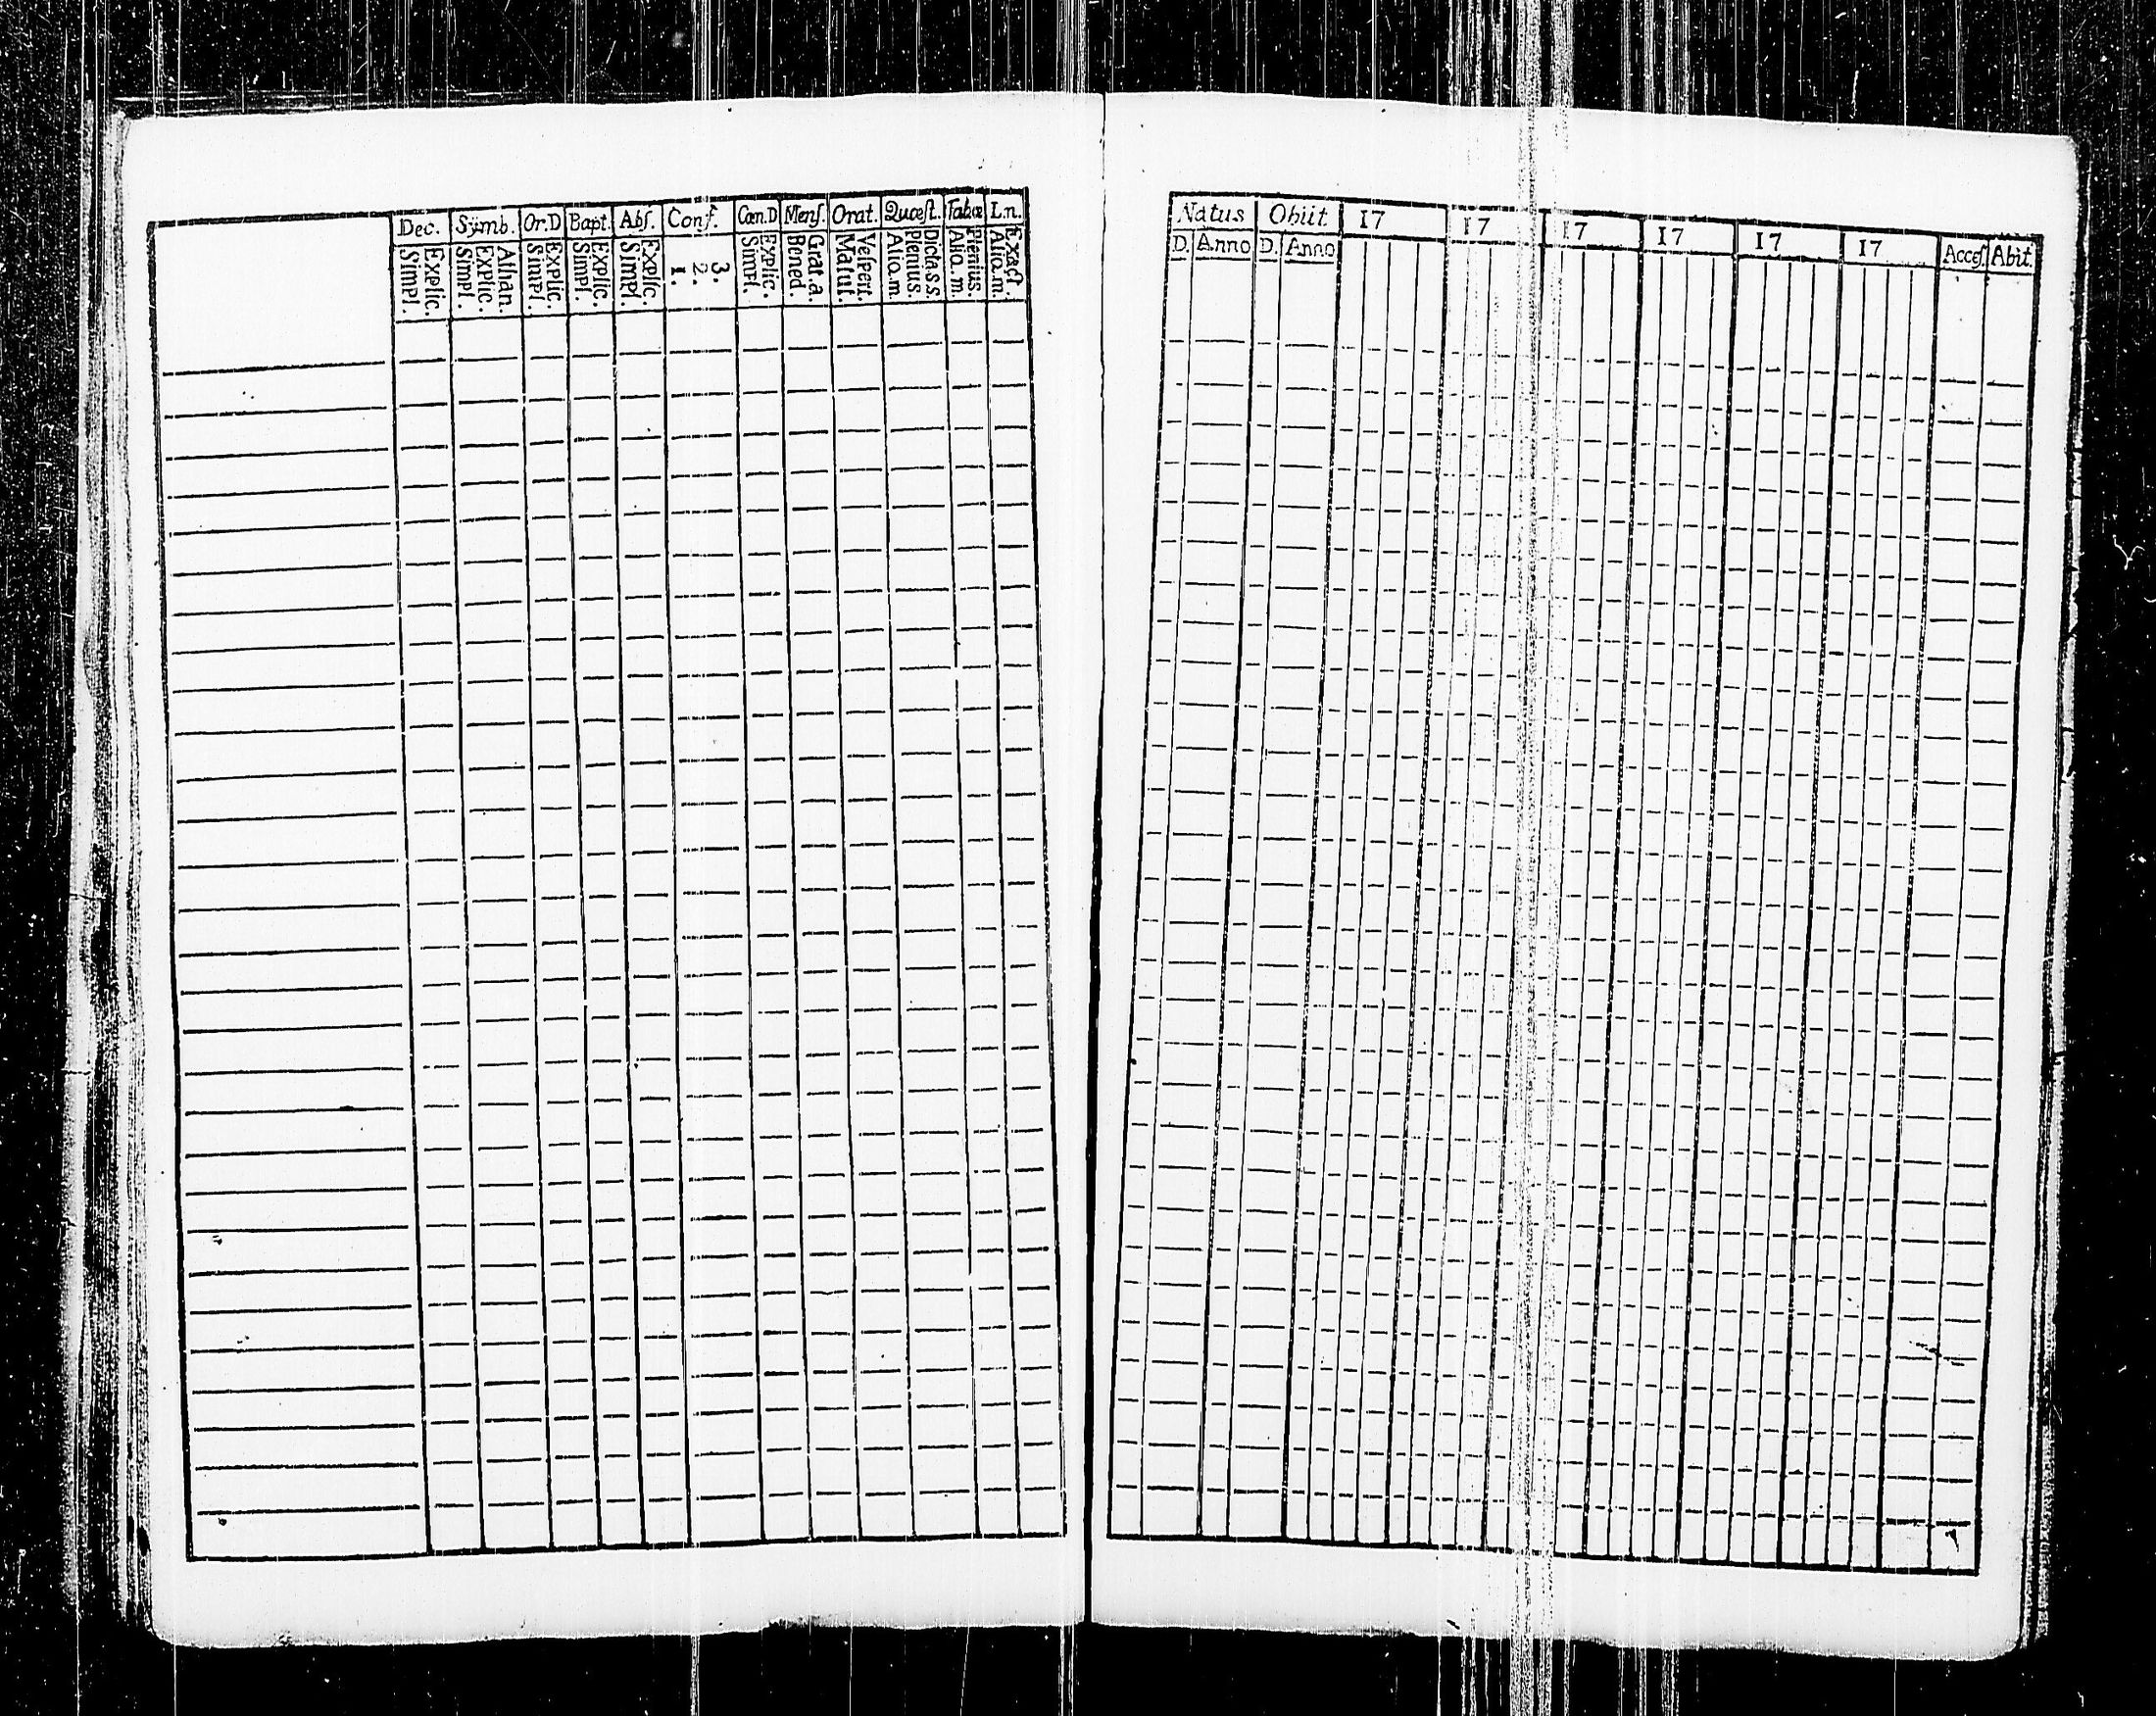 Dec. Sÿmb. Or.D Bapt. Abſ. Conf. Cœn.D Menſ. Orat. Quœſt. Tabœ I.n.
Simpl. Explic. Simpl. Explic. Athan. Simpl. Explic. Simpl. Explic. Simpl. Explic. 1. 2. 3. Simpl. Explic. Bened. Grat.a. Matut. Veſpert. Aliq.m. Plenius. Dicta.s.s. Aliq.m. Plenius. Aliq.m. Exact.
Natus Obiit. 17 17 17 17 17 17
D. Anno D. Anno Acceſ. Abit.